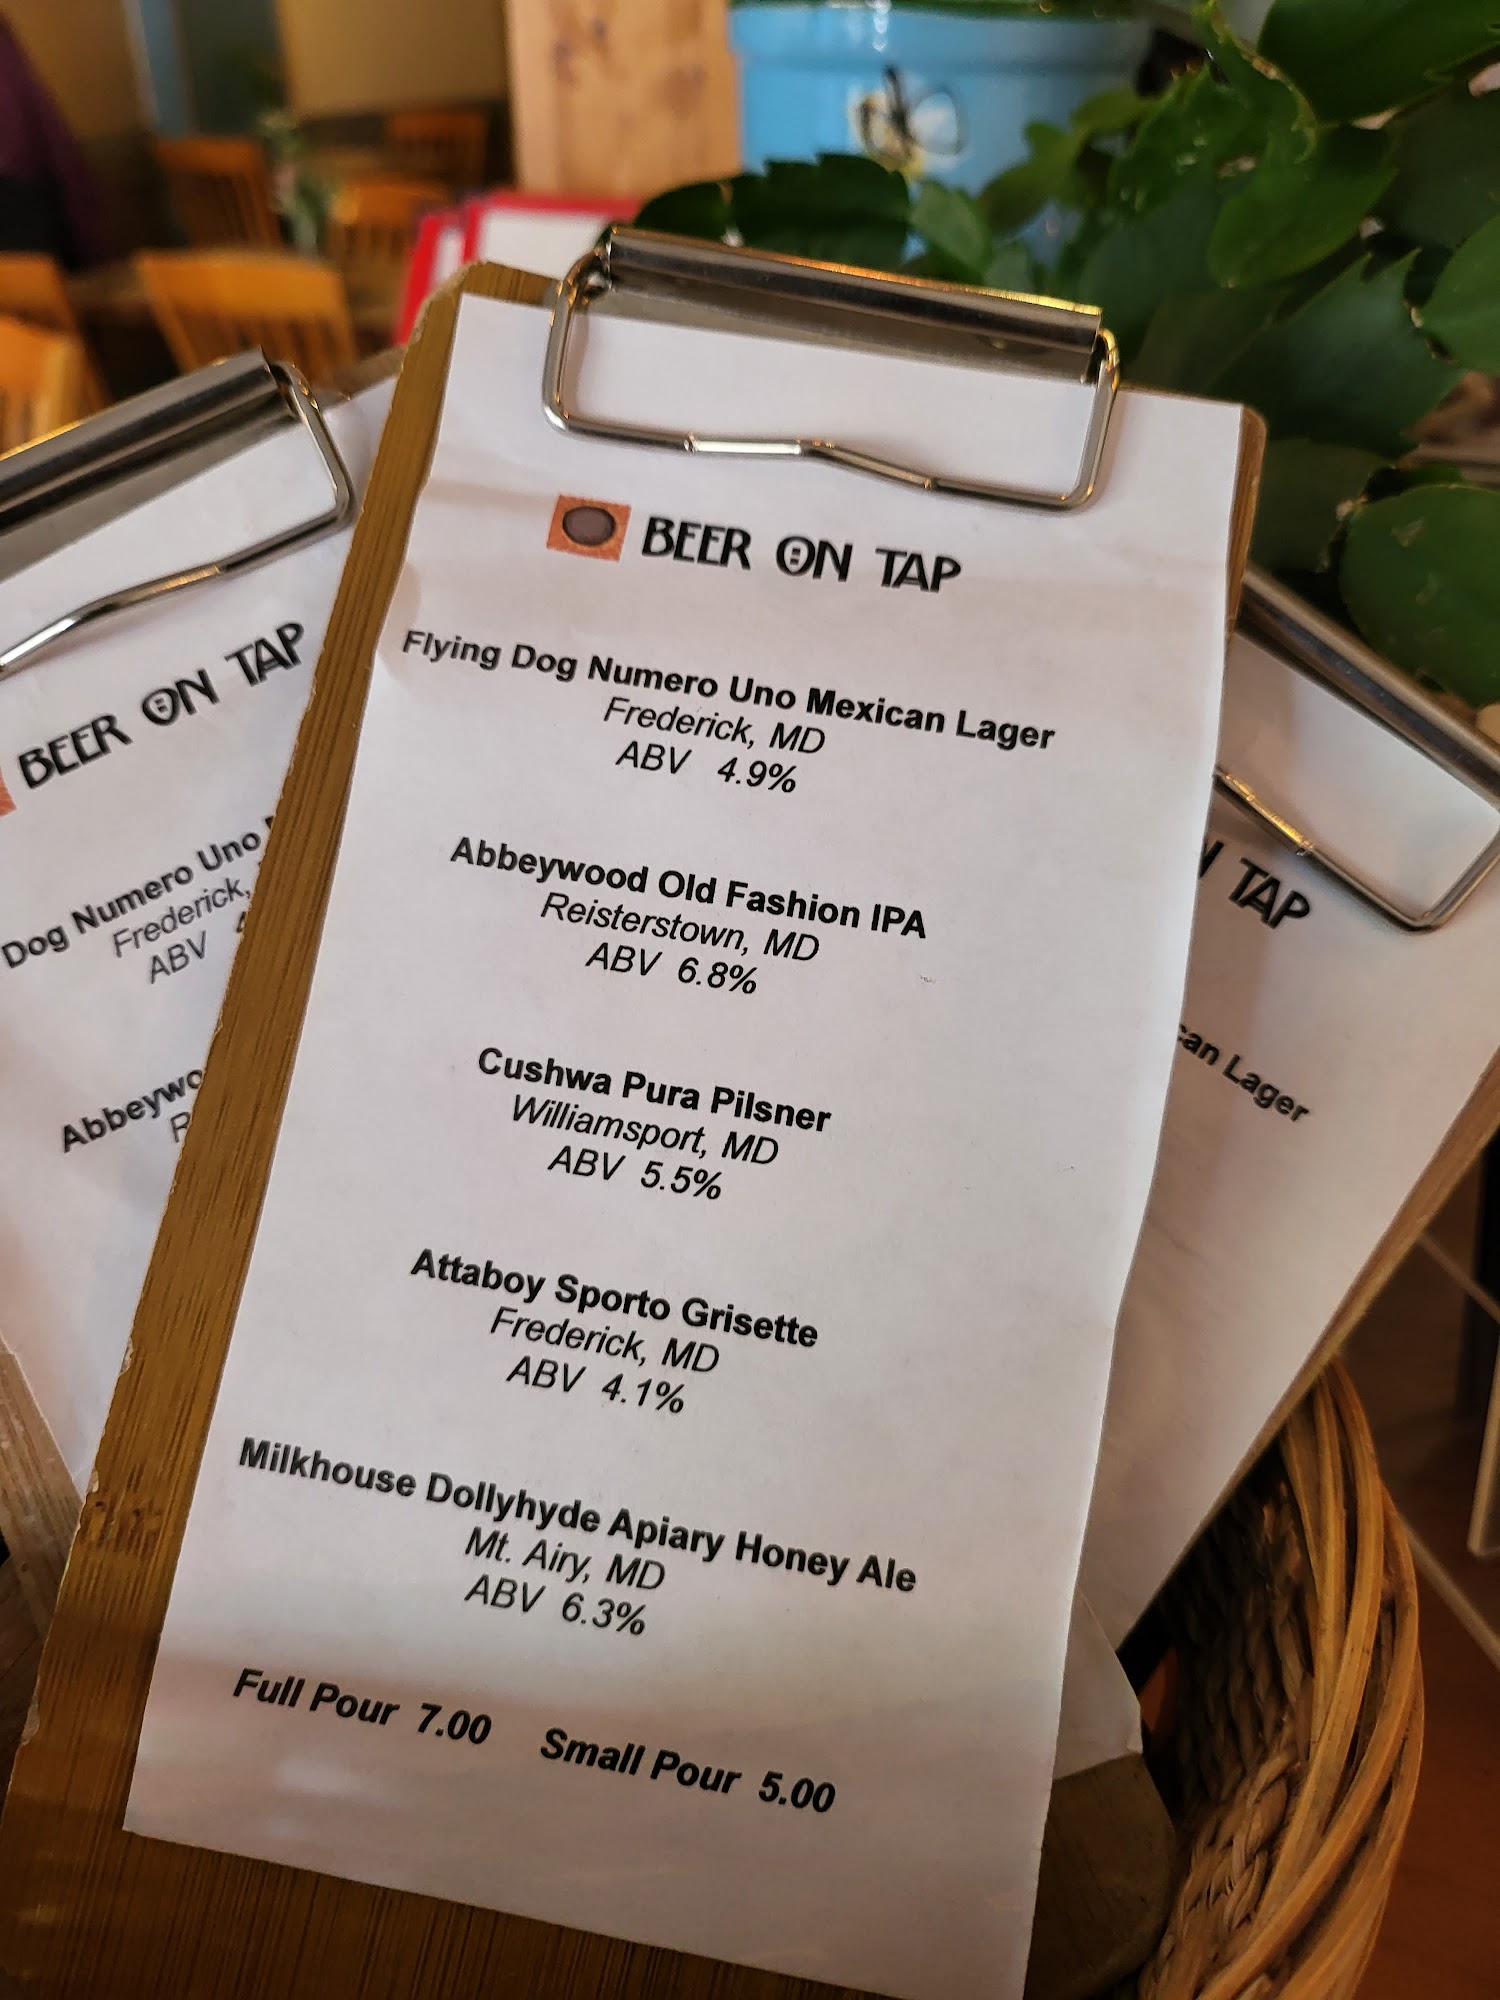 BEER ON TAP
Flying Dog Numero Uno Mexican Lager
Frederick, MD
ABV 4.9%
Abbeywood Old Fashion IPA
Reisterstown, MD
ABV 6.8%
Cushwa Pura Pilsner
Williamsport, MD
ABV 5.5%
Attaboy Sporto Grisette
Frederick, MD
ABV 4.1%
Milkhouse Dollyhyde Apiary Honey Ale
Mt. Airy, MD
ABV 6.3%
Full Pour 7.00 Small Pour 5.00
BEER ON TAP
Dog Numero Uno
Frederick,
ABV
Abbeywo
TAP
can Lager